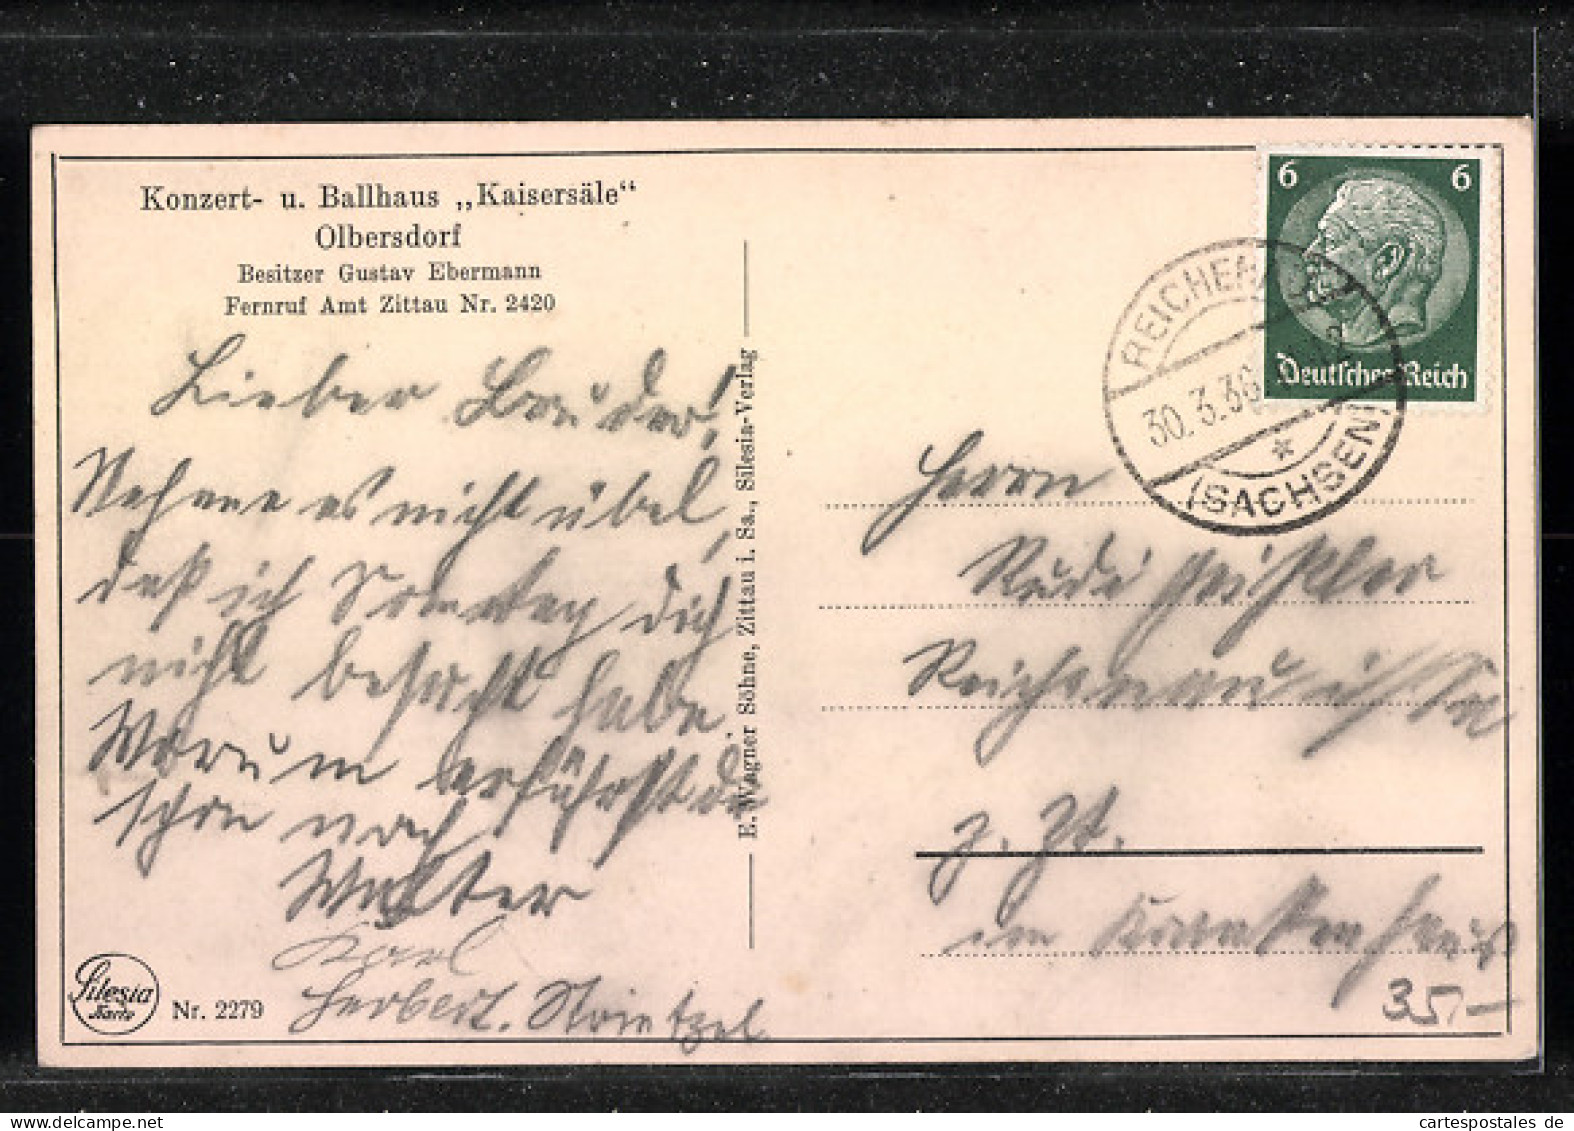 Konzert- u. Ballhaus „Kaisersäle“
Olbersdorf
Besitzer Gustav Ebermann
Fernruf Amt Zittau Nr. 2420
Lieber Bruder!
Nehme es nicht übel,
daß ich Sonntag dich
nicht besucht habe.
Warum erfährst du
schon noch
Walter
Karl
Herbert.
Silesia
Karte
Nr. 2279
E. Wagner Söhne, Zittau i. Sa., Silesia-Verlag
6 6
Deutsches Reich
REICHENAU
30.3.36
(SACHSEN)
Herrn
Rudi
Reichenau i/Sa
z. Zt.
im Krankenhaus
35,-
cartespostales de